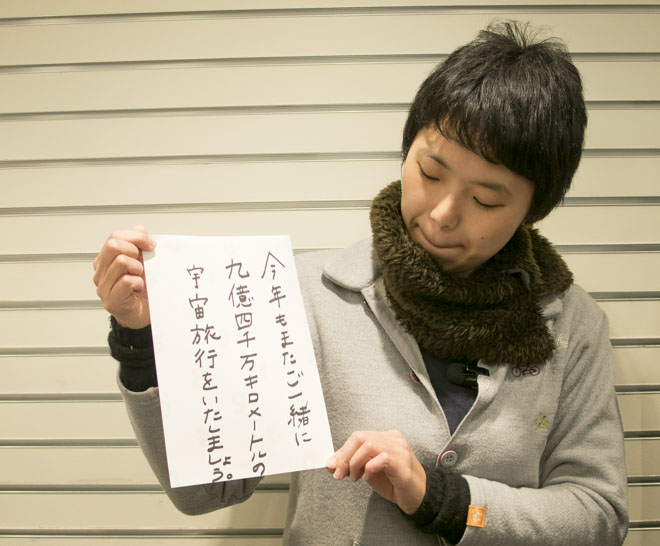 今年もまたご一緒に
九億四千万キロメートルの
宇宙旅行をいたしましょう。